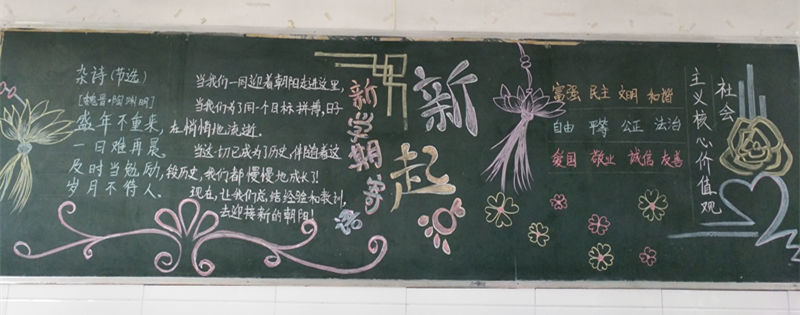 杂诗(节选)
[魏晋·陶渊明]
盛年不重来,
一日难再晨
及时当勉励,
岁月不待人.
当我们一同迎着朝阳走进这里,
当我们为了同一个目标拼搏,日子
在悄悄地流逝.
当这一切已成为了历史,伴随着这
段历史,我们都慢慢地成长了!
现在,让我们总结经验和教训,
去迎接新的朝阳!
新学期寄
新起
富强 民主 文明 和谐
自由 平等 公正 法治
爱国 敬业 诚信 友善
社会
主义核心价值观